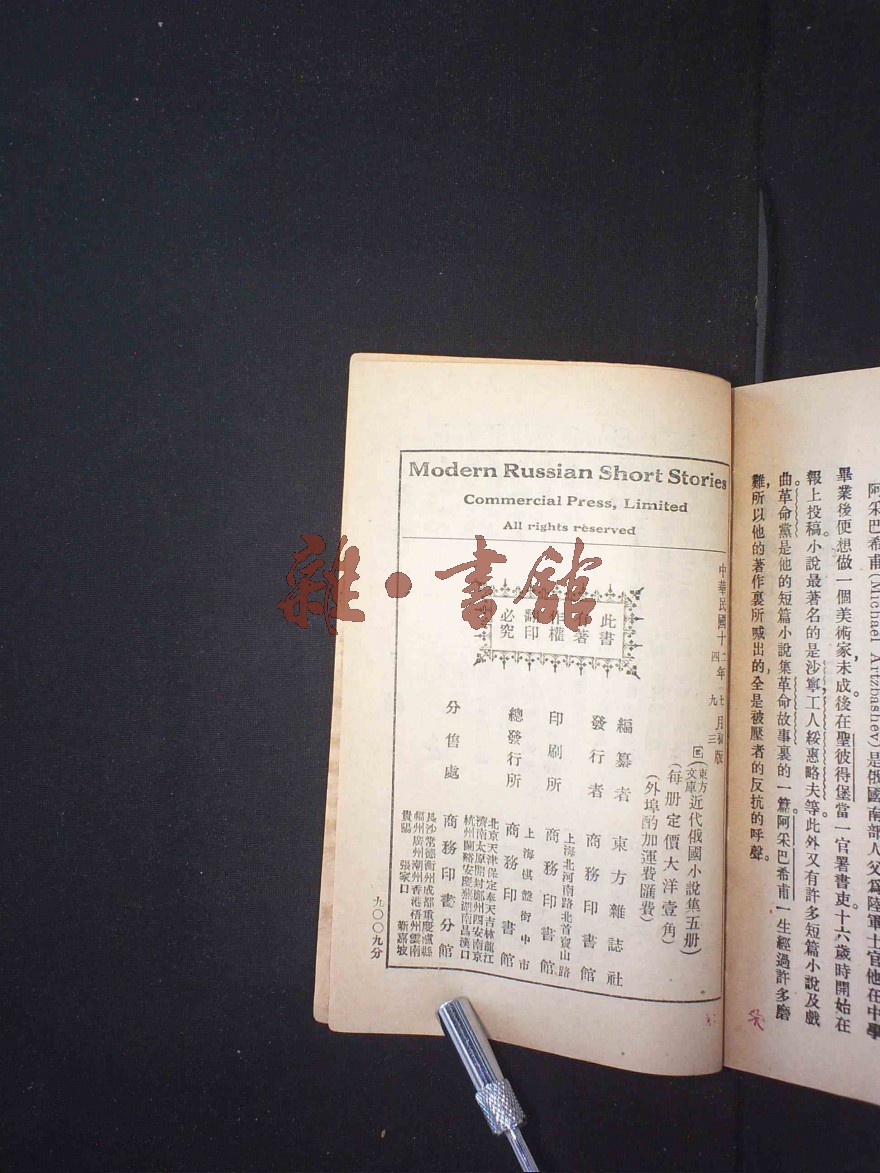 Modern Russian Short Stories
Commercial Press, Limited
All rights reserved
此書
有著
作權
翻印
必究
中華民國十二年七月初版
四 九 三
(東方文庫)近代俄國小說集五册)
(每册定價大洋壹角)
(外埠酌加運費匯費)
編纂者 東方雜誌社
發行者 商務印書館
上海北河南路北首寶山路
印刷所 商務印書館
上海棋盤街中市
總發行所 商務印書館
北京天津保定奉天吉林龍江
濟南太原開封鄭州西安南京
杭州蘭谿安慶蕪湖南昌漢口
分售處 商務印書分館
長沙常德衡州成都重慶瀘縣
福州廣州潮州香港梧州雲南
貴陽 張家口 新嘉坡
九〇〇九分
阿采巴希甫(Michael Artzbashev)是俄國南部人父爲陸軍士官他在中學
畢業後便想做一個美術家,未成。後在聖彼得堡當一官署書吏。十六歲時開始在
報上投稿。小說最著名的是沙寧,工人綏惠略夫等。此外又有許多短篇小說及戲
曲。革命黨是他的短篇小說集革命故事裏的一篇。阿采巴希甫一生經過許多磨
難,所以他的著作裏所喊出的,全是被壓者的反抗的呼聲。
雜·書館